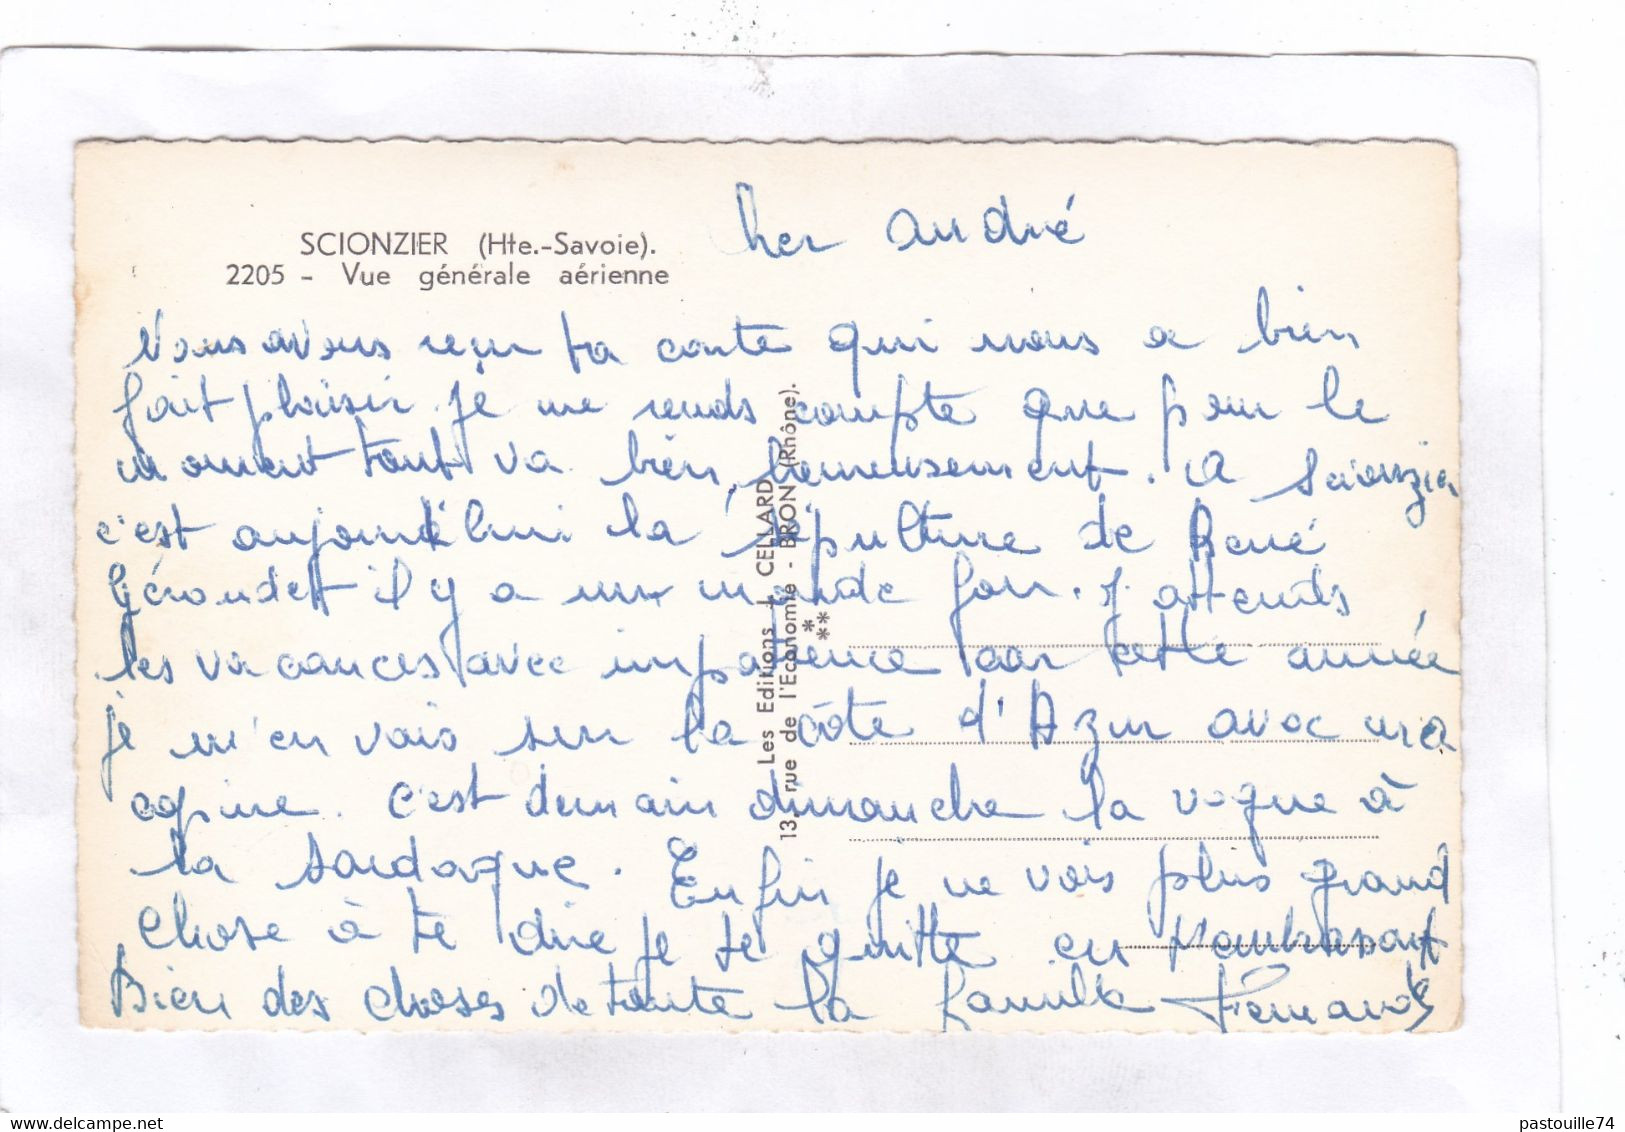 SCIONZIER (Hte.-Savoie).
2205 - Vue générale aérienne
Cher André
Nous avons reçu ta carte qui nous a bien
fait plaisir. je me rends compte que pour le
moment tout va bien, heureusement. A Scionzier
c'est aujourd'hui la sépulture de René
il y a un monde fou. J'attends
les vacances avec impatience car cette année
je m'en vais sur la côte d'Azur avec ma
copine. C'est demain dimanche la vogue à
la Sardagne. Enfin je ne vois plus grand
chose à te dire je te quitte en t'embrassant
Bien des choses de toute la famille Fernande
Les Editions CELLARD
13, rue de l'Economie - BRON (Rhône).
delcampe.net
pastouille74